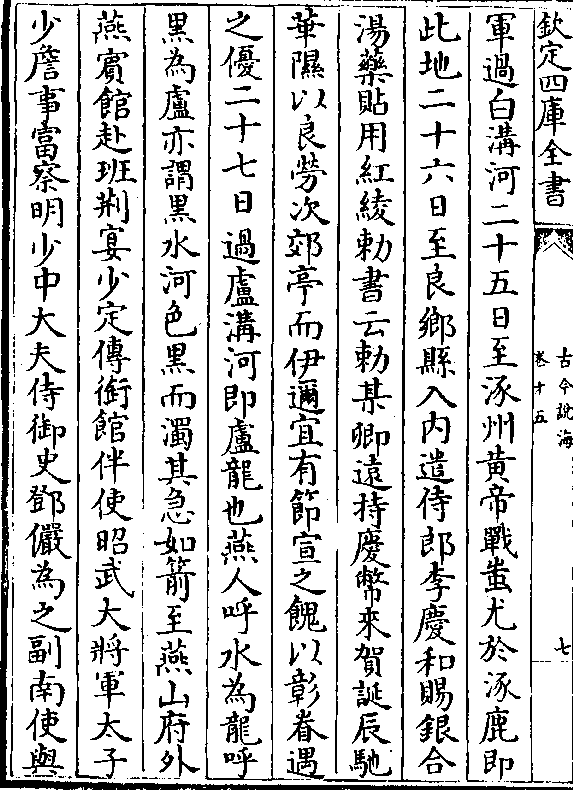 欽定四庫全書
古今說海
卷十五
七
軍過白溝河二十五日至涿州黃帝戰蚩尤於涿鹿即
此地二十六日至良鄉縣入内遣侍郎李慶和賜銀合
湯藥貼用紅綾勅書云勅某卿遠持慶幣來賀誕辰馳
華隰以良勞次郊亭而伊邇宜有節宣之餽以彰眷遇
之優二十七日過盧溝河即盧龍也燕人呼水為龍呼
黒為盧亦謂黒水河色黒而濁其急如箭至燕山府外
燕賓館赴班荆宴少定傳銜館伴使昭武大將軍太子
少詹事富察明少中大夫侍御史鄧儼為之副南使與